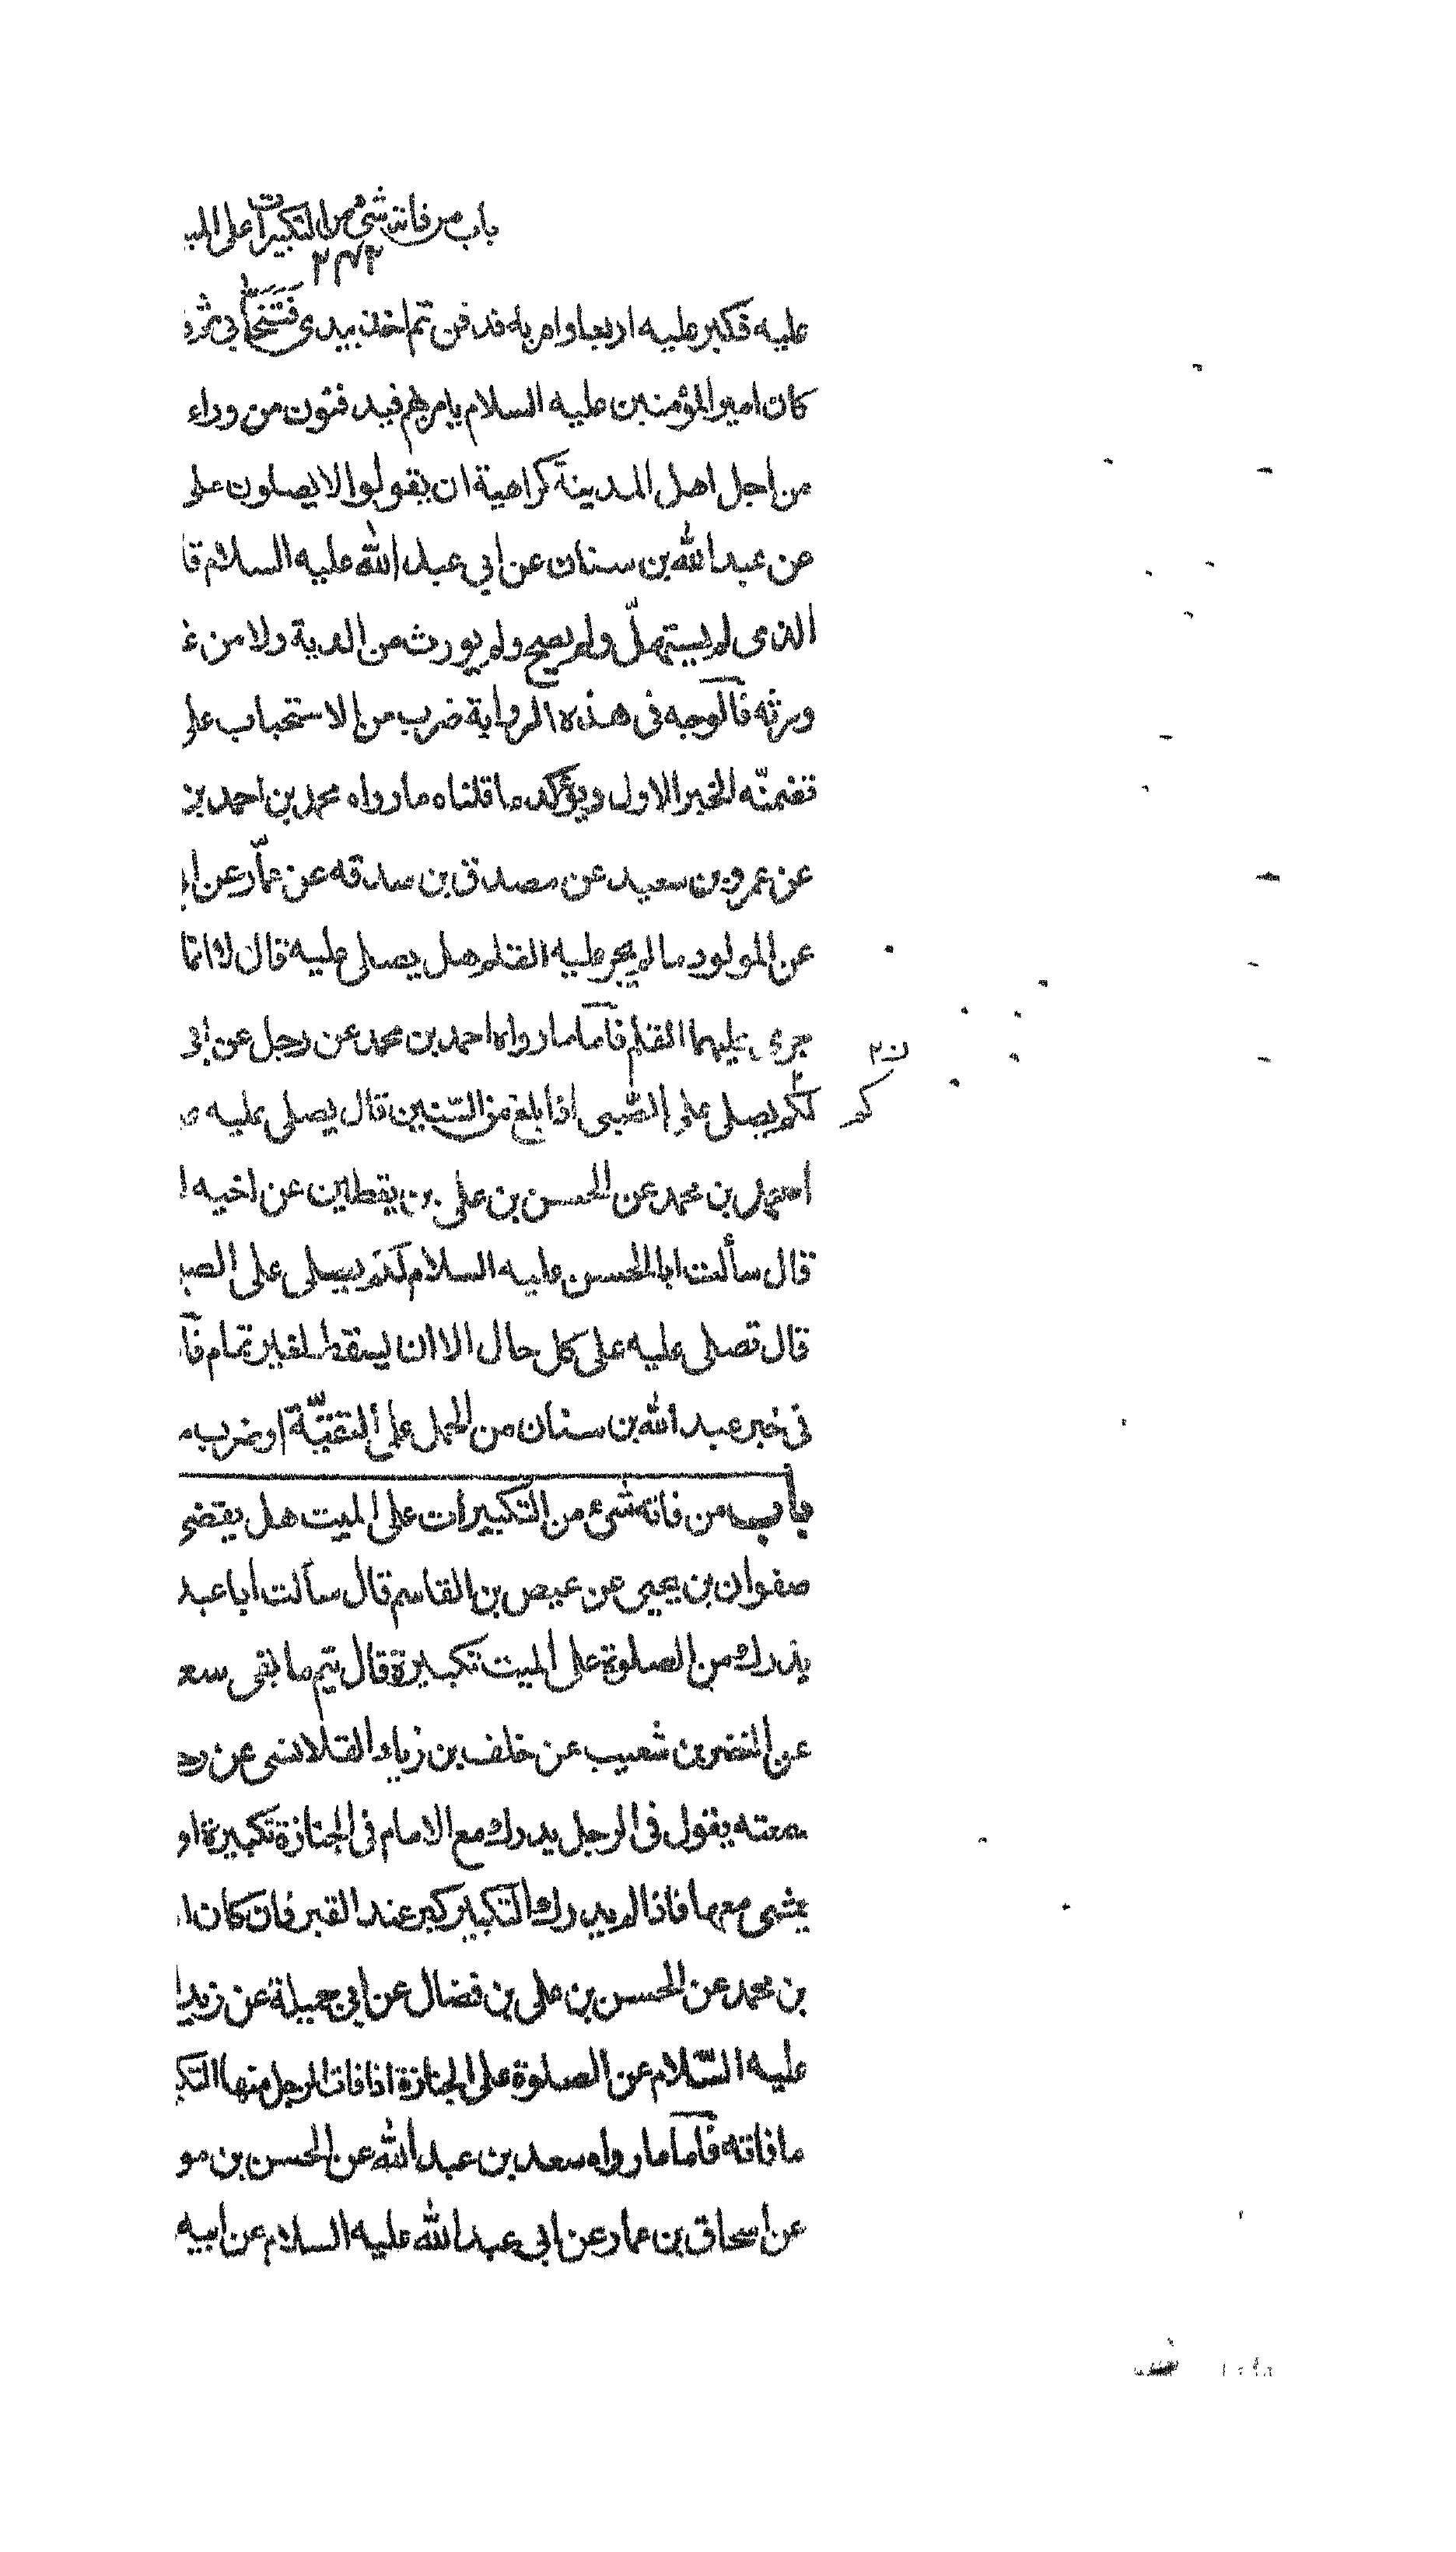 باب من فاته شئ من التكبيرات على الميـ
٢٤٢
عليه فكبر عليه اربعا وامر به فدفن ثم اخذ بيدى فتنحا بى ثم
كان امير المؤمنين عليه السلام يامر بهم فيدفنون من وراء
من اجل اهل المدينة كراهية ان يقولوا لا يصلون على
عن عبد الله بن سنان عن ابي عبد الله عليه السلام قا
الذى لم يستهلّ ولم يصح ولم يورث من الدية ولا من غـ
ورثه فالوجه فى هذه الرواية ضرب من الاستحباب على
تضمنّه الخبر الاول ويؤكد ما قلناه ما رواه محمد بن احمد بن
عن عمرو بن سعيد عن مصدق بن صدقه عن عمّار عن ا
عن المولود ما لم يجر عليه القلم هل يصلى عليه قال لا انما
جرى عليهما القلم فاما ما رواه احمد بن محمد عن رجل عن ابى
لكم يصلى على الصّبى اذا بلغ من السّنين قال يصلى عليه
كم
ن٢
احمد بن محمد عن الحسن بن على بن يقطين عن اخيه ا
قال سألت ابا الحسن عليه السلام لكم يصلى على الصبـ
قال تصلى عليه على كل حال الا ان يسقط لغير تمام فا
فى خبر عبد الله بن سنان من الحمل على التقيّة او ضرب مـ
باب من فاته شئ من التكبيرات على الميت هل يقضى
صفوان بن يحيى عن عيص بن القاسم قال سألت ابا عبد
يدرك من الصلوة على الميت تكبيرة قال يتم ما بقى سعـ
عن النضر بن شعيب عن خلف بن زياد القلانسى عن رجـ
سمعته يقول فى الرجل يدرك مع الامام فى الجنازة تكبيرة او
يمشى معها فاذا لم يدرك التكبير كبر عند القبر فان كان ا
بن محمد عن الحسن بن على بن فضال عن ابي جميلة عن زيد ا
عليه السّلام عن الصلوة على الجنازة اذا فات الرجل منها التكـ
ما فاته فاما ما رواه سعد بن عبد الله عن الحسن بن مو
عن اسحاق بن عمار عن ابي عبد الله عليه السلام عن ابيه